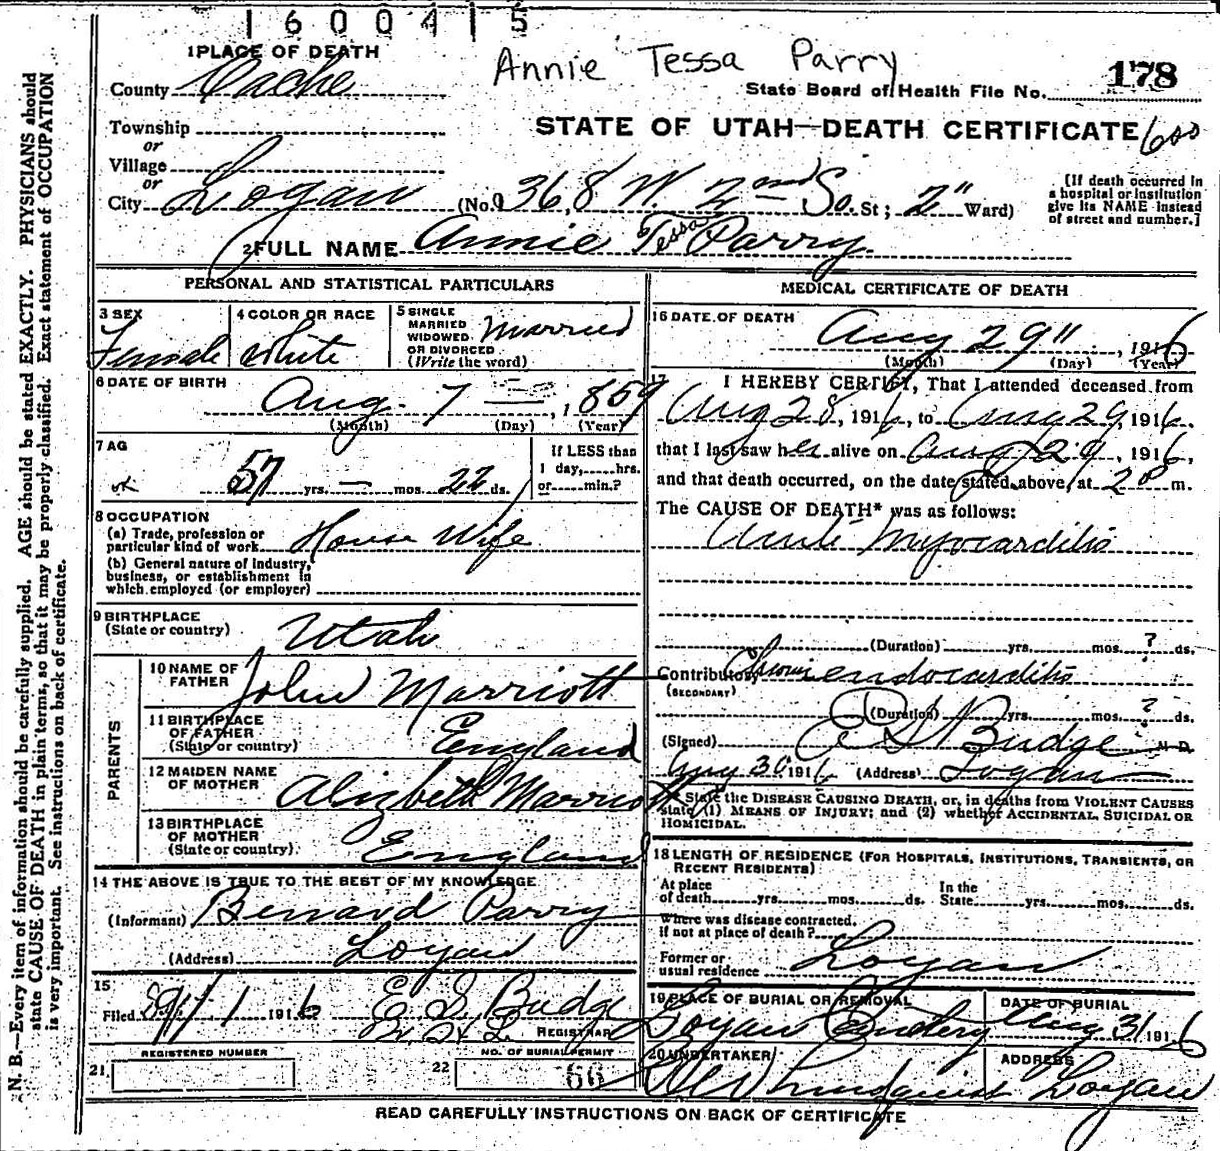 1 6 0 0 4 1 5
1 PLACE OF DEATH
Annie Tessa Parry
178
County Cache
State Board of Health File No.
Township
STATE OF UTAH—DEATH CERTIFICATE
or
Village
or
City Logan (No. 368 W. 2nd So. St; 2" Ward)
[If death occurred in
a hospital or institution
give its NAME instead
of street and number.]
2 FULL NAME Annie Tessa Parry
PERSONAL AND STATISTICAL PARTICULARS
3 SEX
Female
4 COLOR OR RACE
White
5 SINGLE
MARRIED
WIDOWED
OR DIVORCED
(Write the word)
Married
6 DATE OF BIRTH
Aug. 7 — , 1859
(Month) (Day) (Year)
7 AG
57 yrs. — mos. 22 ds.
If LESS than
1 day, hrs.
or min.?
8 OCCUPATION
(a) Trade, profession or
particular kind of work House Wife
(b) General nature of industry,
business, or establishment in
which employed (or employer)
9 BIRTHPLACE
(State or country)
Utah
PARENTS
10 NAME OF
FATHER
John Marriott
11 BIRTHPLACE
OF FATHER
(State or country)
England
12 MAIDEN NAME
OF MOTHER
Alizbeth Marriott
13 BIRTHPLACE
OF MOTHER
(State or country)
England
14 THE ABOVE IS TRUE TO THE BEST OF MY KNOWLEDGE
(Informant) Bernard Parry
(Address) Logan
15
Filed 9/1 1916 E S Budge
REGISTRAR
REGISTERED NUMBER
21.
NO. OF BURIAL PERMIT
22 66
MEDICAL CERTIFICATE OF DEATH
16 DATE OF DEATH
Aug 29" , 1916
(Month) (Day) (Year)
17 I HEREBY CERTIFY, That I attended deceased from
Aug 28, 1916, to Aug 29, 1916.
that I last saw her alive on Aug 29, 1916,
and that death occurred, on the date stated above, at m.
The CAUSE OF DEATH* was as follows:
Acute Myocarditis
(Duration) yrs. mos. ? ds.
Contributory Chronic endocarditis
(SECONDARY)
(Duration) yrs. mos. ? ds.
(Signed) E S Budge M.D.
Aug 30 1916 (Address) Logan
* State the DISEASE CAUSING DEATH, or, in deaths from VIOLENT CAUSES
state (1) MEANS OF INJURY; and (2) whether ACCIDENTAL, SUICIDAL OR
HOMICIDAL.
18 LENGTH OF RESIDENCE (FOR HOSPITALS, INSTITUTIONS, TRANSIENTS, OR
RECENT RESIDENTS)
At place
of death yrs. mos. ds.
In the
State yrs. mos. ds.
Where was disease contracted,
if not at place of death?
Former or
usual residence Logan
19 PLACE OF BURIAL OR REMOVAL
Logan Cemetery
DATE OF BURIAL
Aug 31 1916
20 UNDERTAKER
Lundquist
ADDRESS
Logan
READ CAREFULLY INSTRUCTIONS ON BACK OF CERTIFICATE
N. B.—Every item of information should be carefully supplied. AGE should be stated EXACTLY. PHYSICIANS should
state CAUSE OF DEATH in plain terms, so that it may be properly classified. Exact statement of OCCUPATION
is very important. See instructions on back of certificate.